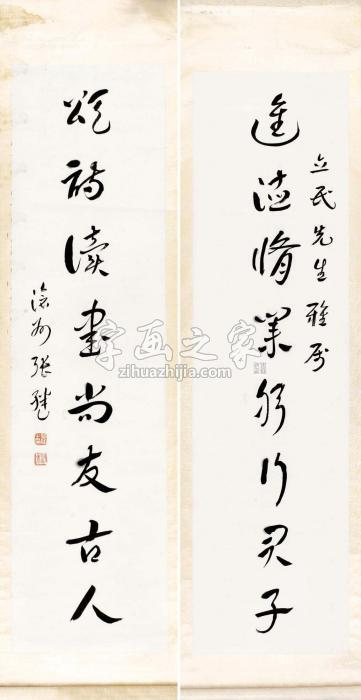 立民先生雅属
進德脩業躬行君子
頌詩讀書尚友古人
滄州張繼
字画之家
zihuazhijia.com